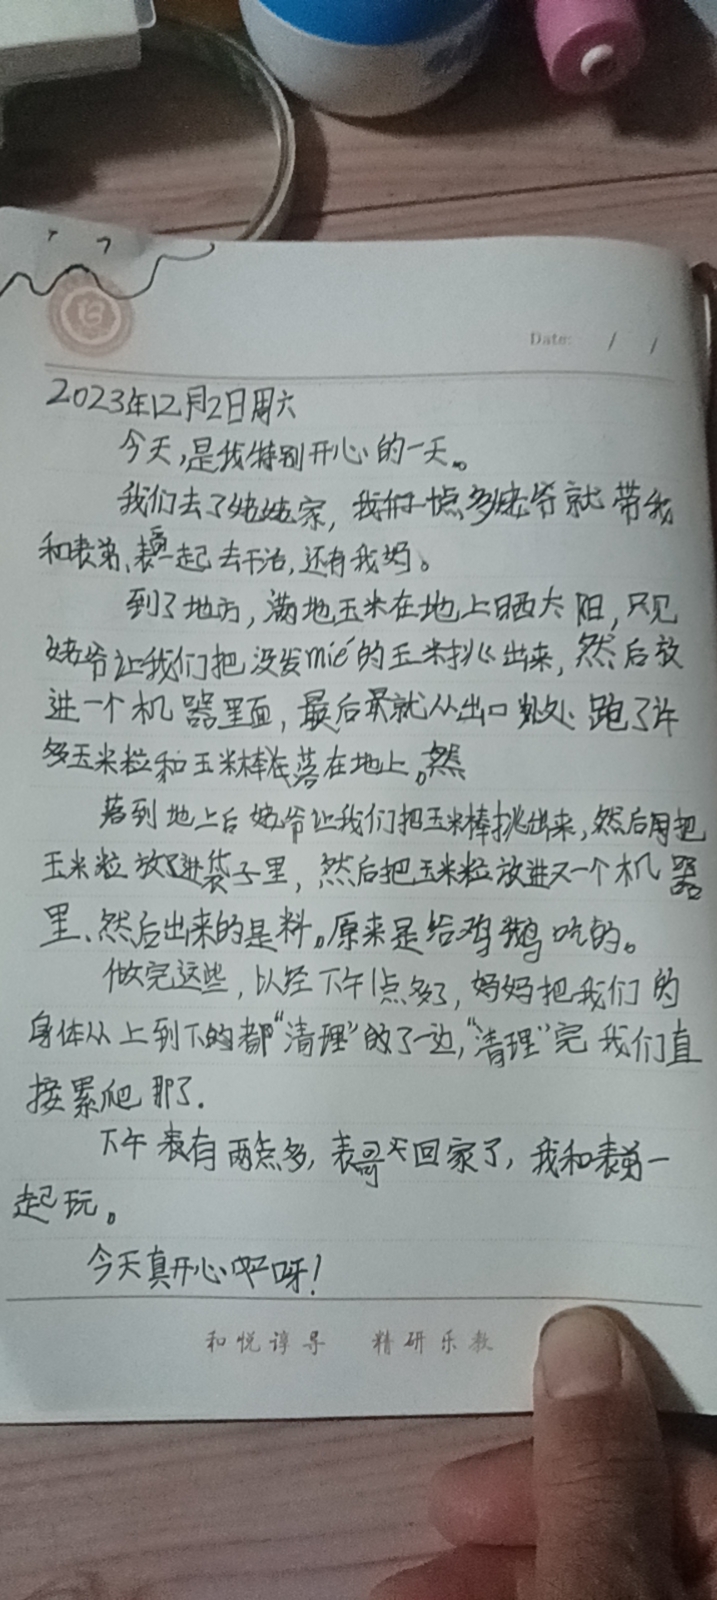 Date: / /
2023年12月2日周六
今天,是我特别开心的一天。
我们去了姥姥家,我们十点多姥爷就带我
和表弟、表哥一起去干活,还有我妈。
到了地方,满地玉米在地上晒太阳,只见
姥爷让我们把没发mié的玉米挑出来,然后放
进一个机器里面,最后就从出口处跑了许
多玉米粒和玉米棒落在地上。然
落到地上后姥爷让我们把玉米棒挑出来,然后把
玉米粒放进袋子里,然后把玉米粒放进又一个机器
里、然后出来的是料。原来是给鸡鹅吃的。
做完这些,以经下午1点多了,妈妈把我们的
身体从上到下的都“清理”的了一边,“清理”完我们直
接累爬那了.
下午有两点多,表哥回家了,我和表弟一
起玩。
今天真开心呀!
和悦谆导 精研乐教